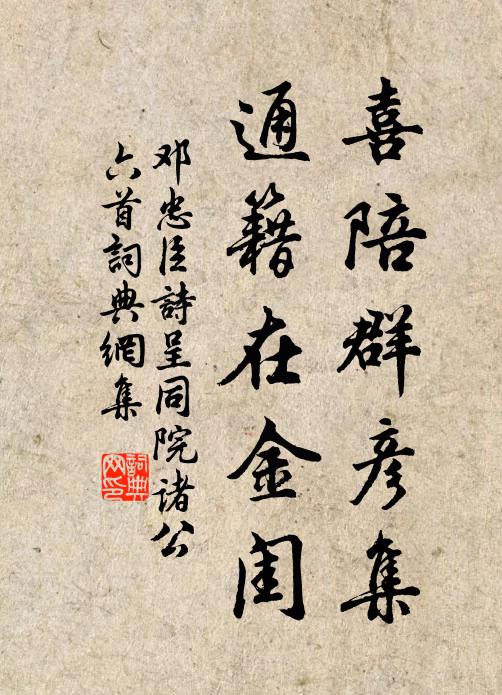 喜陪群彦集
通籍在金闺
邓忠臣詩呈同院诸公
六首詞典網集
詞典網印